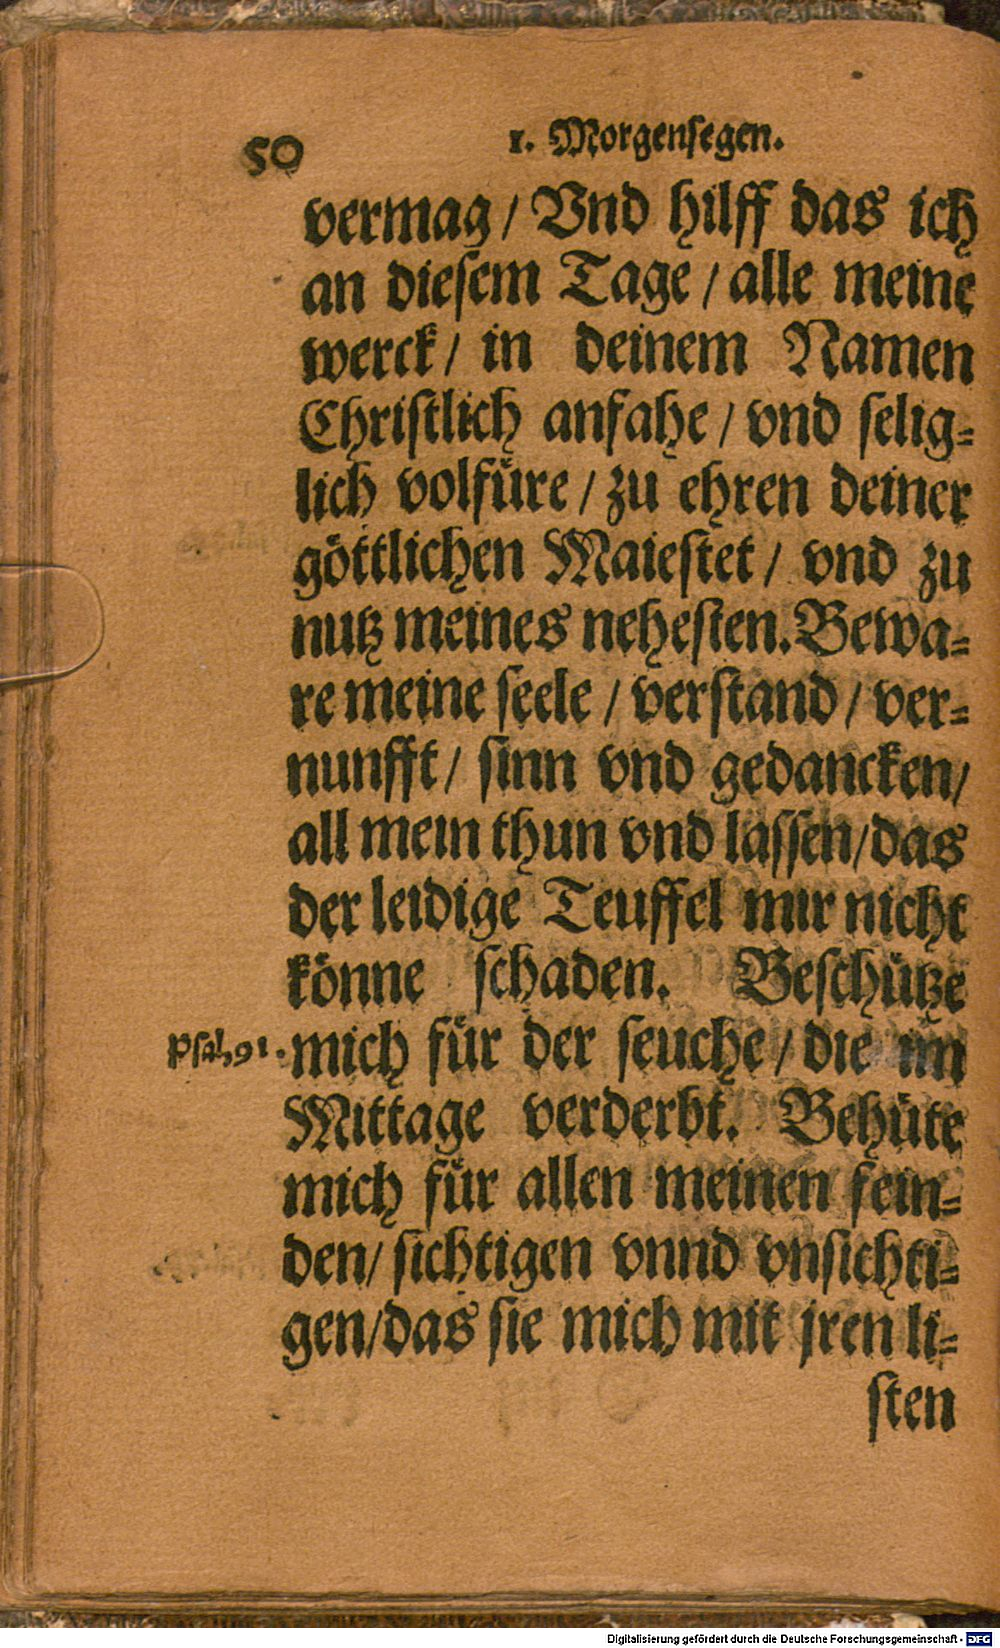 50
1. Morgensegen.
vermag / Vnd hilff das ich
an diesem Tage / alle meine
werck / in deinem Namen
Christlich anfahe / vnd selig=
lich volfüre / zu ehren deiner
göttlichen Maiestet / vnd zu
nutz meines nehesten. Bewa=
re meine seele / verstand / ver=
nunfft / sinn vnd gedancken /
all mein thun vnd lassen / das
der leidige Teuffel mir nicht
könne schaden. Beschütze
Psal. 91.
mich für der seuche / die im
Mittage verderbt. Behüte
mich für allen meinen fein=
den / sichtigen vnnd vnsichti=
gen / das sie mich mit jren li=
sten
Digitalisierung gefördert durch die Deutsche Forschungsgemeinschaft - DFG